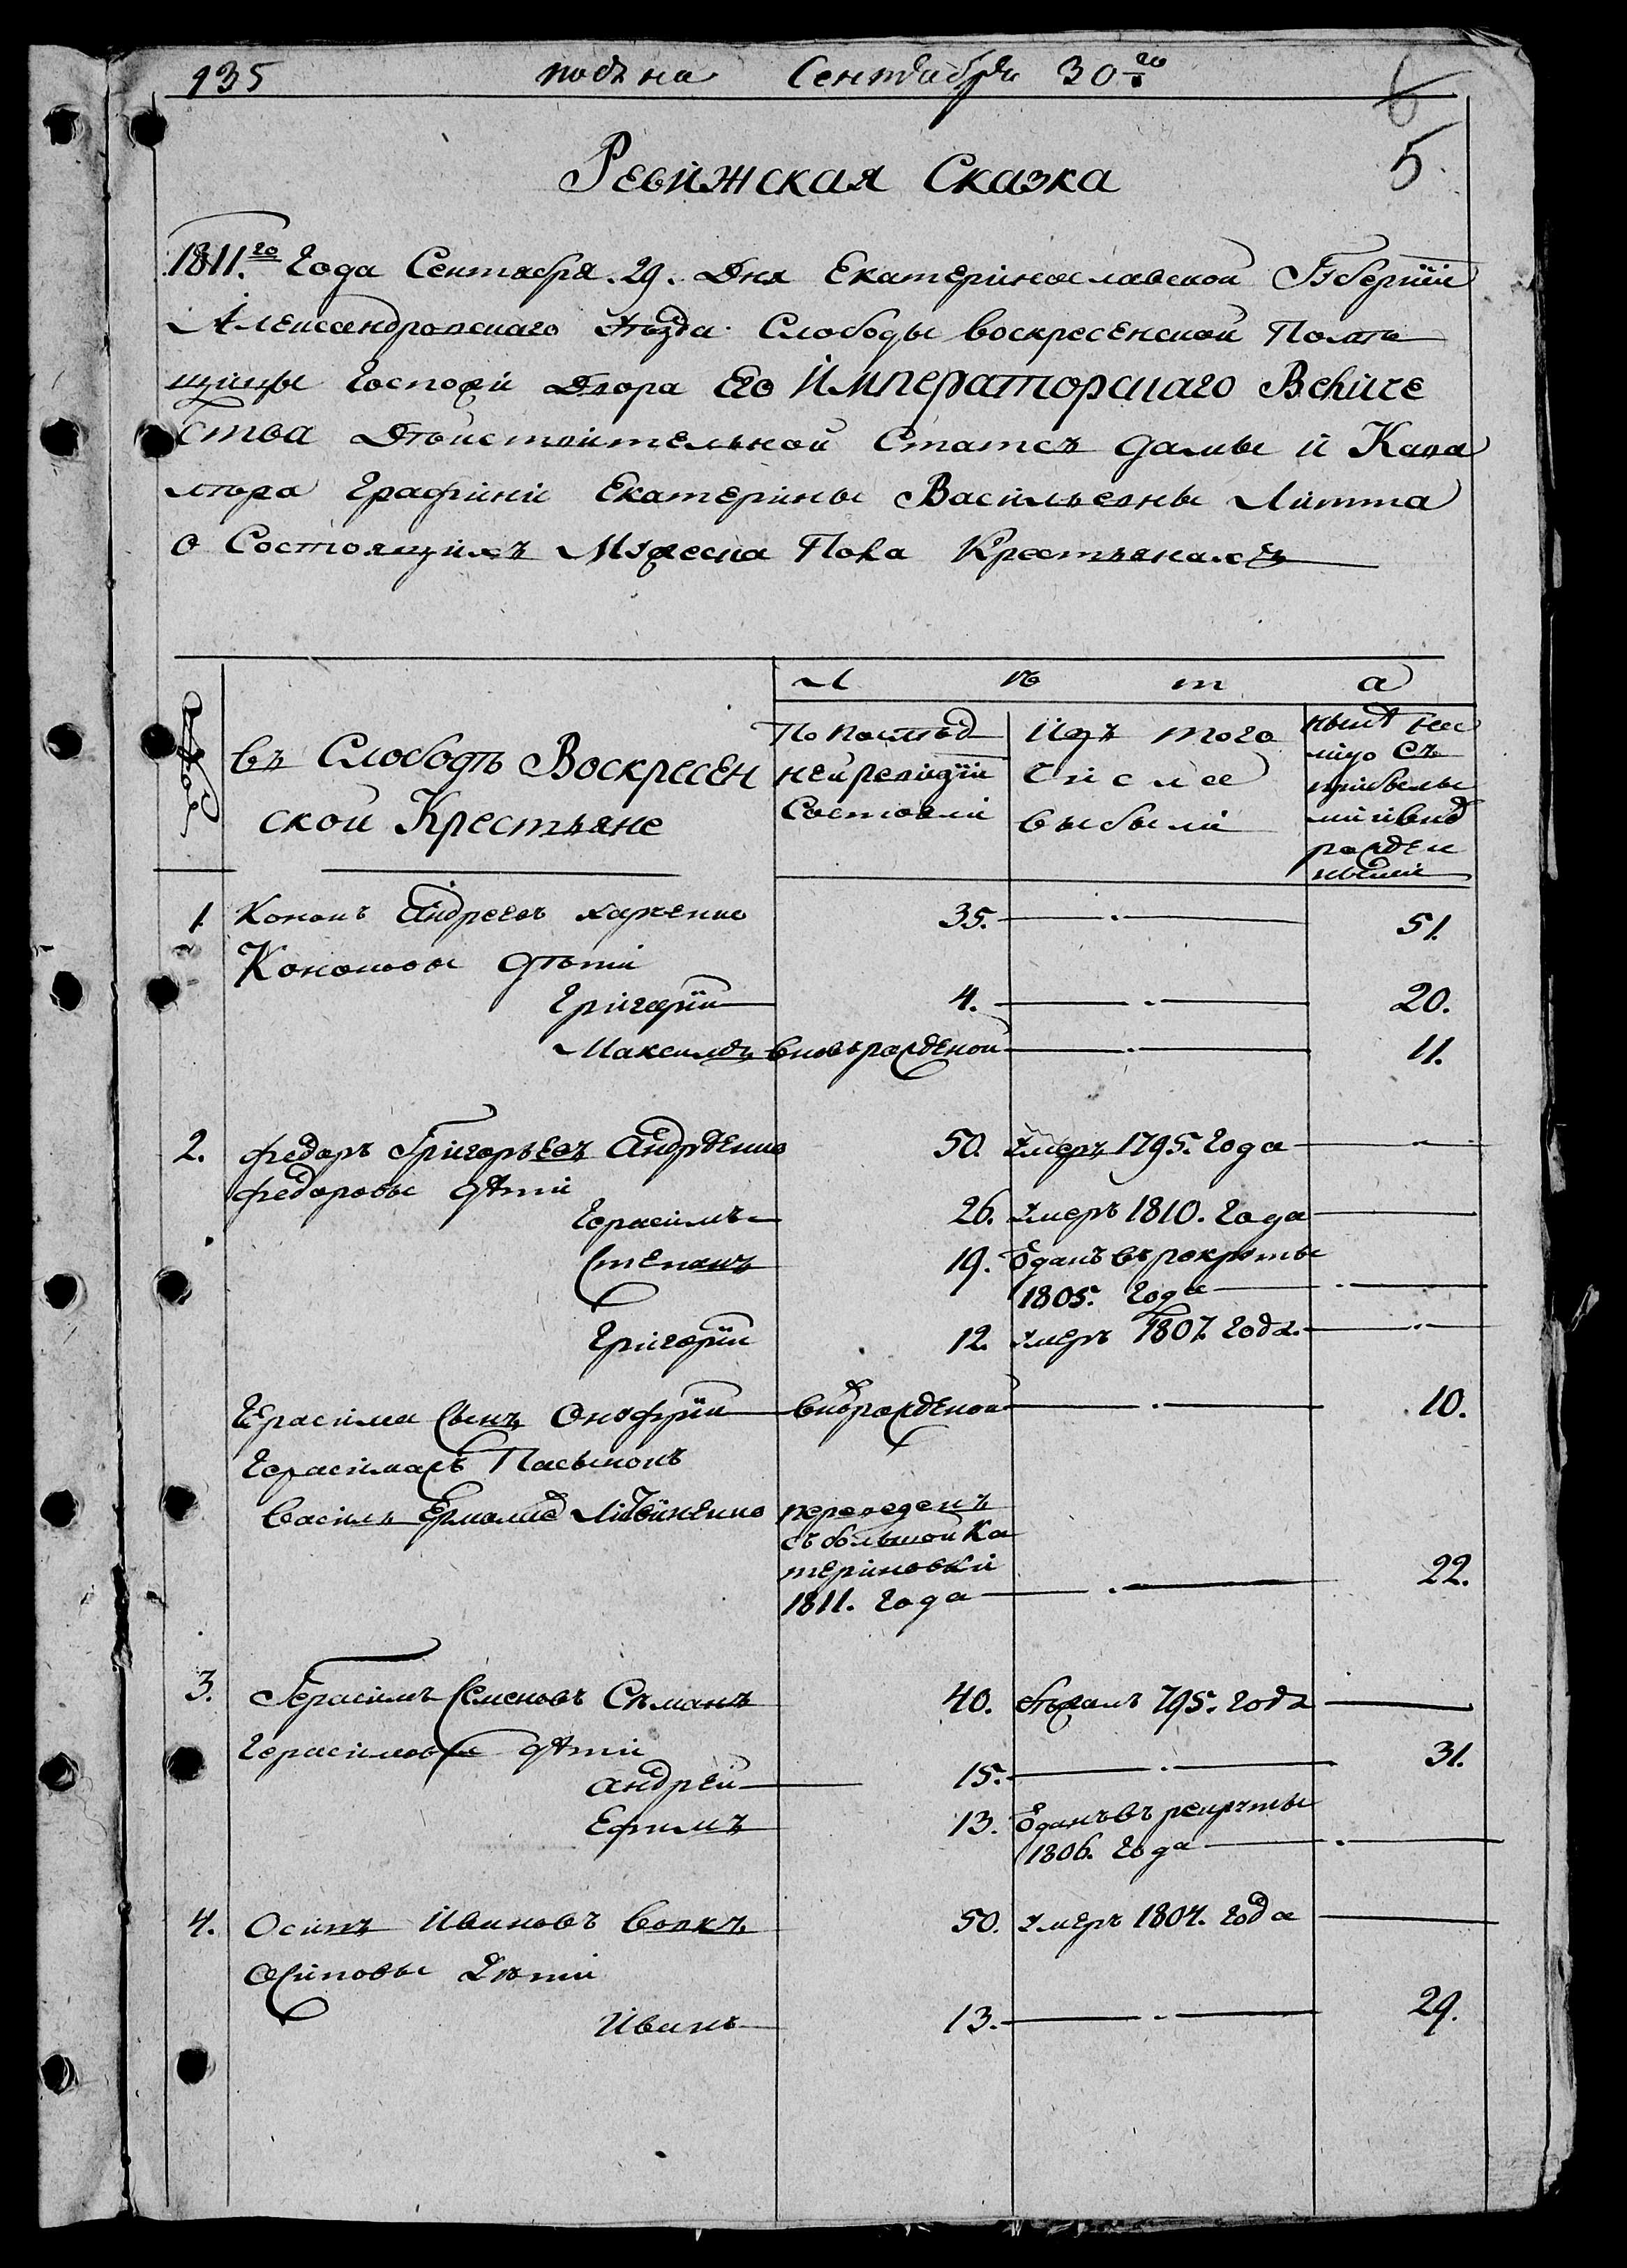 935 подана Сентября 30го
6
5.
Ревижская Сказка
1811.го Года Сентября 29. Дня Екатеринославской Губернии
Александровскаго Уѣзда Слободы воскресенской Помѣ
щицы Госпожи Двора Его Императорскаго Величе
ства Дѣйствительной Статсъ дамы и Кава
лера Графини Екатерины Васильевны Литта
О Состоящихъ Мужеска Пола Крестьянахъ
Л ѣ т а
въ Слободѣ Воскресен
ской Крестьяне
По послѣд
ней ревизии
Состояли
Изъ того
Числа
выбыли
нынѣ на
лицо Съ
прибылы
ми и внов
рожден
ными
1. Кононъ Андреевъ харченко 35. 51.
Кононовы дѣти
Григорий 4. 20.
Максимъ вновьрожденой 11.
2. Федоръ Григорьевъ Андрѣенко 50. умеръ 1795. Года
федоровы дѣти
Герасимъ 26. умеръ 1810. Года
Степанъ 19. Отданъ въ рекруты
1805. Года
Григорий 12. умеръ 1807. Года.
Герасима Сынъ Онуфрий вновьрожденой 10.
Герасимавъ Пасынокъ
Василь Ермолаев Литвиненко переведенъ
съ большой Ка
териновки
1811. Года 22.
3. Герасимъ Семеновъ 40. бѣжалъ 795. Года
Герасимовы дѣти
Андрей 15. 31.
Ефимъ 13. Отданъ въ рекруты
1806. Года
4. Осипъ Ивановъ Волкъ 50. умеръ 1807. Года
Осиповы Дѣти
Иванъ 13. 29.